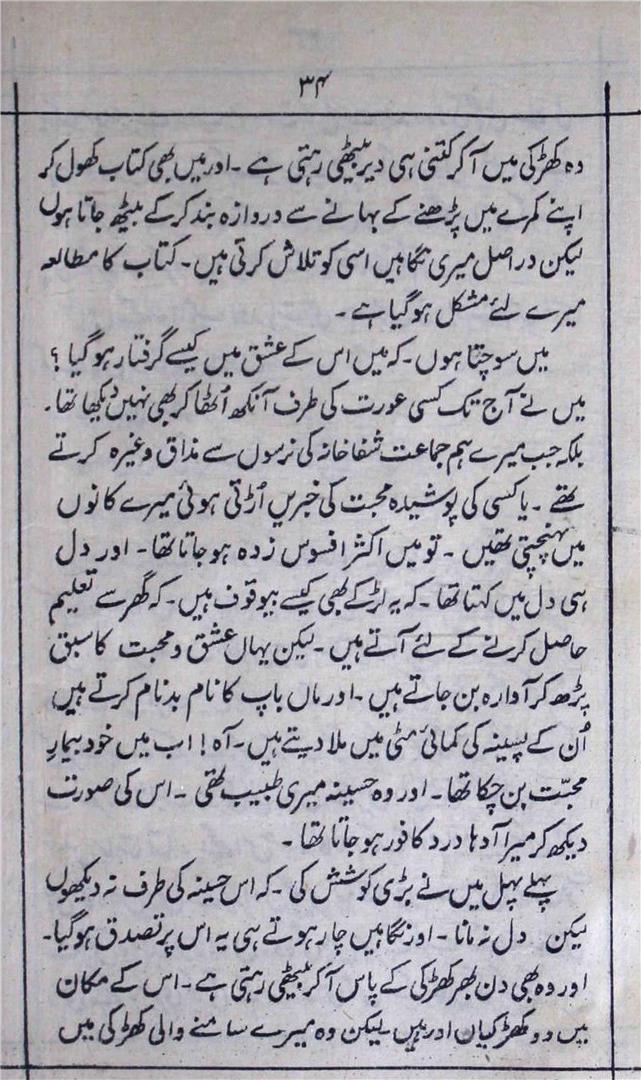 ۳۴
وہ کھڑکی میں آ کر کتنی ہی دیر بیٹھی رہتی ہے ۔ اور میں بھی کتاب کھول کر
اپنے کمرے میں پڑھنے کے بہانے سے دروازہ بند کر کے بیٹھ جاتا ہوں
لیکن دراصل میری نگاہیں اسی کو تلاش کرتی ہیں ۔ کتاب کا مطالعہ
میرے لئے مشکل ہو گیا ہے ۔
میں سوچتا ہوں ۔ کہ میں اس کے عشق میں کیسے گرفتار ہو گیا ؟
میں نے آج تک کسی عورت کی طرف آنکھ اُٹھا کر بھی نہیں دیکھا تھا ۔
بلکہ جب میرے ہم جماعت شفا خانہ کی نرسوں سے مذاق وغیرہ کرتے
تھے ۔ یا کسی کی پوشیدہ محبت کی خبریں اُڑتی ہوئی میرے کانوں
میں پہنچتی تھیں ۔ تو میں اکثر افسوس زدہ ہو جاتا تھا ۔ اور دل
ہی دل میں کہتا تھا ۔ کہ یہ لڑکے بھی کیسے بیوقوف ہیں ۔ کہ گھر سے تعلیم
حاصل کرنے کے لئے آتے ہیں ۔ لیکن یہاں عشق و محبت کا سبق
پڑھ کر آوارہ بن جاتے ہیں ۔ اور ماں باپ کا نام بدنام کرتے ہیں
اُن کے پسینہ کی کمائی مٹی میں ملا دیتے ہیں ۔ آہ ! اب میں خود بیمارِ
محبّت بن چکا تھا ۔ اور وہ حسینہ میری طبیب تھی ۔ اس کی صورت
دیکھ کر میرا آدہا درد کافور ہو جاتا تھا ۔
پہلے پہل میں نے بڑی کوشش کی ۔ کہ اس حسینہ کی طرف نہ دیکھوں
لیکن دل نہ مانا ۔ اور نگاہیں چار ہوتے ہی یہ اس پر تصدق ہو گیا ۔
اور وہ بھی دن بھر کھڑکی کے پاس آ کر بیٹھی رہتی ہے ۔ اس کے مکان
میں دو کھڑکیاں اور ہیں ۔ لیکن وہ میرے سامنے والی کھڑکی میں